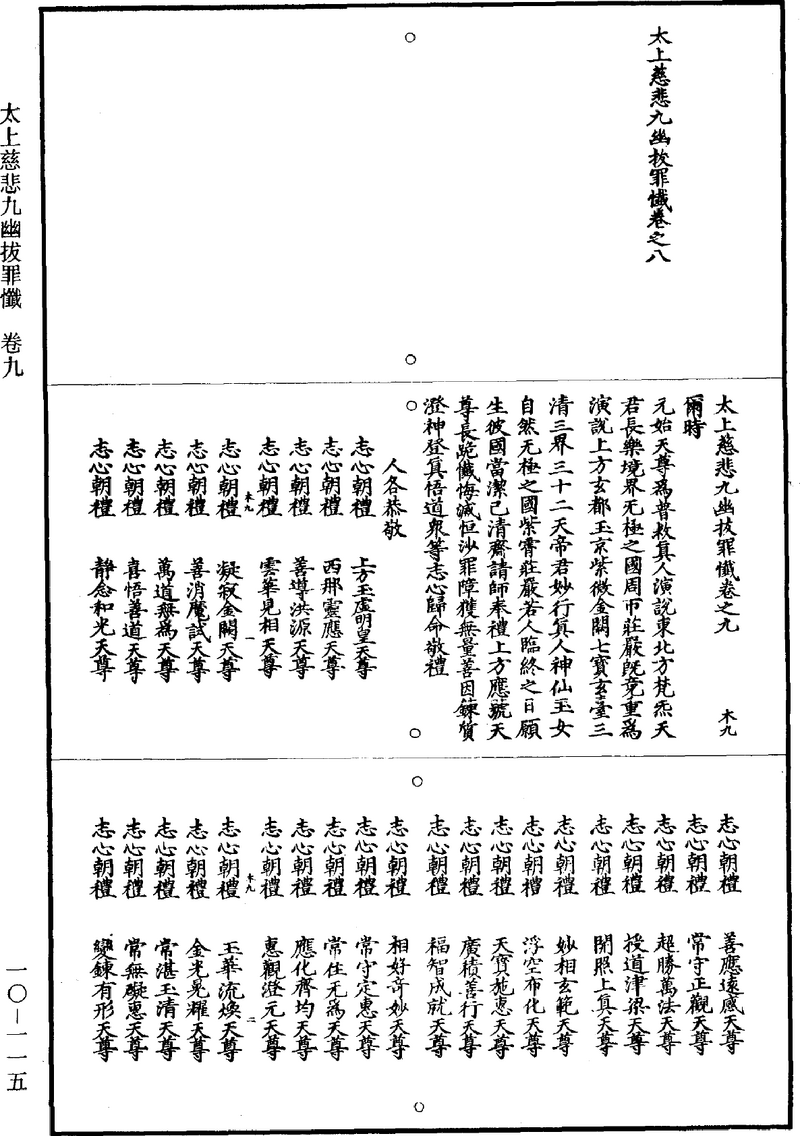 太上慈悲九幽拔罪懺　卷九
一〇—一一五
太上慈悲九幽拔罪懺卷之八
太上慈悲九幽拔罪懺卷之九　木九
爾時
元始天尊爲普救真人演說東北方梵炁天
君長樂境界无極之國周帀莊嚴旣竟重爲
演說上方玄都玉京紫微金闕七寶玄臺三
清三界三十二天帝君妙行真人神仙玉女
自然无極之國紫霄莊嚴若人臨終之日願
生彼國當潔己清齋請師奉禮上方應號天
尊長跪懺悔滅恒沙罪障獲無量善因鍊質
澄神登真悟道衆等志心歸命敬禮
人各恭敬
志心朝禮　上方玉虛明皇天尊
志心朝禮　西那靈應天尊
志心朝禮　善導洪源天尊
志心朝禮　雲華見相天尊
木九　一
志心朝禮　凝寂金闕天尊
志心朝禮　善消魔試天尊
志心朝禮　萬道無爲天尊
志心朝禮　喜悟善道天尊
志心朝禮　靜念和光天尊
志心朝禮　善應遠感天尊
志心朝禮　常守正觀天尊
志心朝禮　超勝萬法天尊
志心朝禮　授道津梁天尊
志心朝禮　開照上真天尊
志心朝禮　妙相玄範天尊
志心朝禮　浮空布化天尊
志心朝禮　天寶施惠天尊
志心朝禮　廣積善行天尊
志心朝禮　福智成就天尊
志心朝禮　相好奇妙天尊
志心朝禮　常守定惠天尊
志心朝禮　常住无爲天尊
志心朝禮　應化齊均天尊
志心朝禮　惠觀澄元天尊
木九　二
志心朝禮　玉華流煥天尊
志心朝禮　金光晃耀天尊
志心朝禮　常湛玉清天尊
志心朝禮　常無礙惠天尊
志心朝禮　變鍊有形天尊